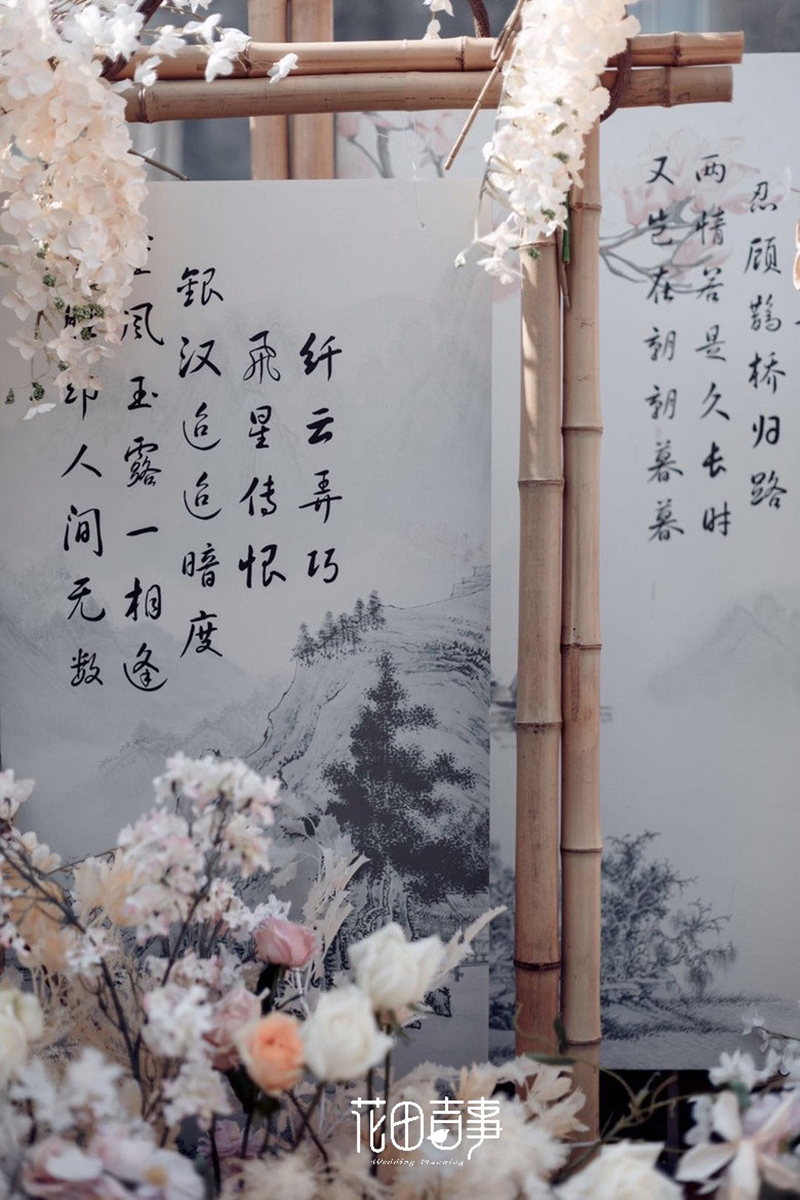 纤云弄巧
飛星传恨
銀汉迢迢暗度
风玉露一相逢
却人间无数
忍顾鹊桥归路
两情若是久长时
又岂在朝朝暮暮
花田喜事
Wedding Planning